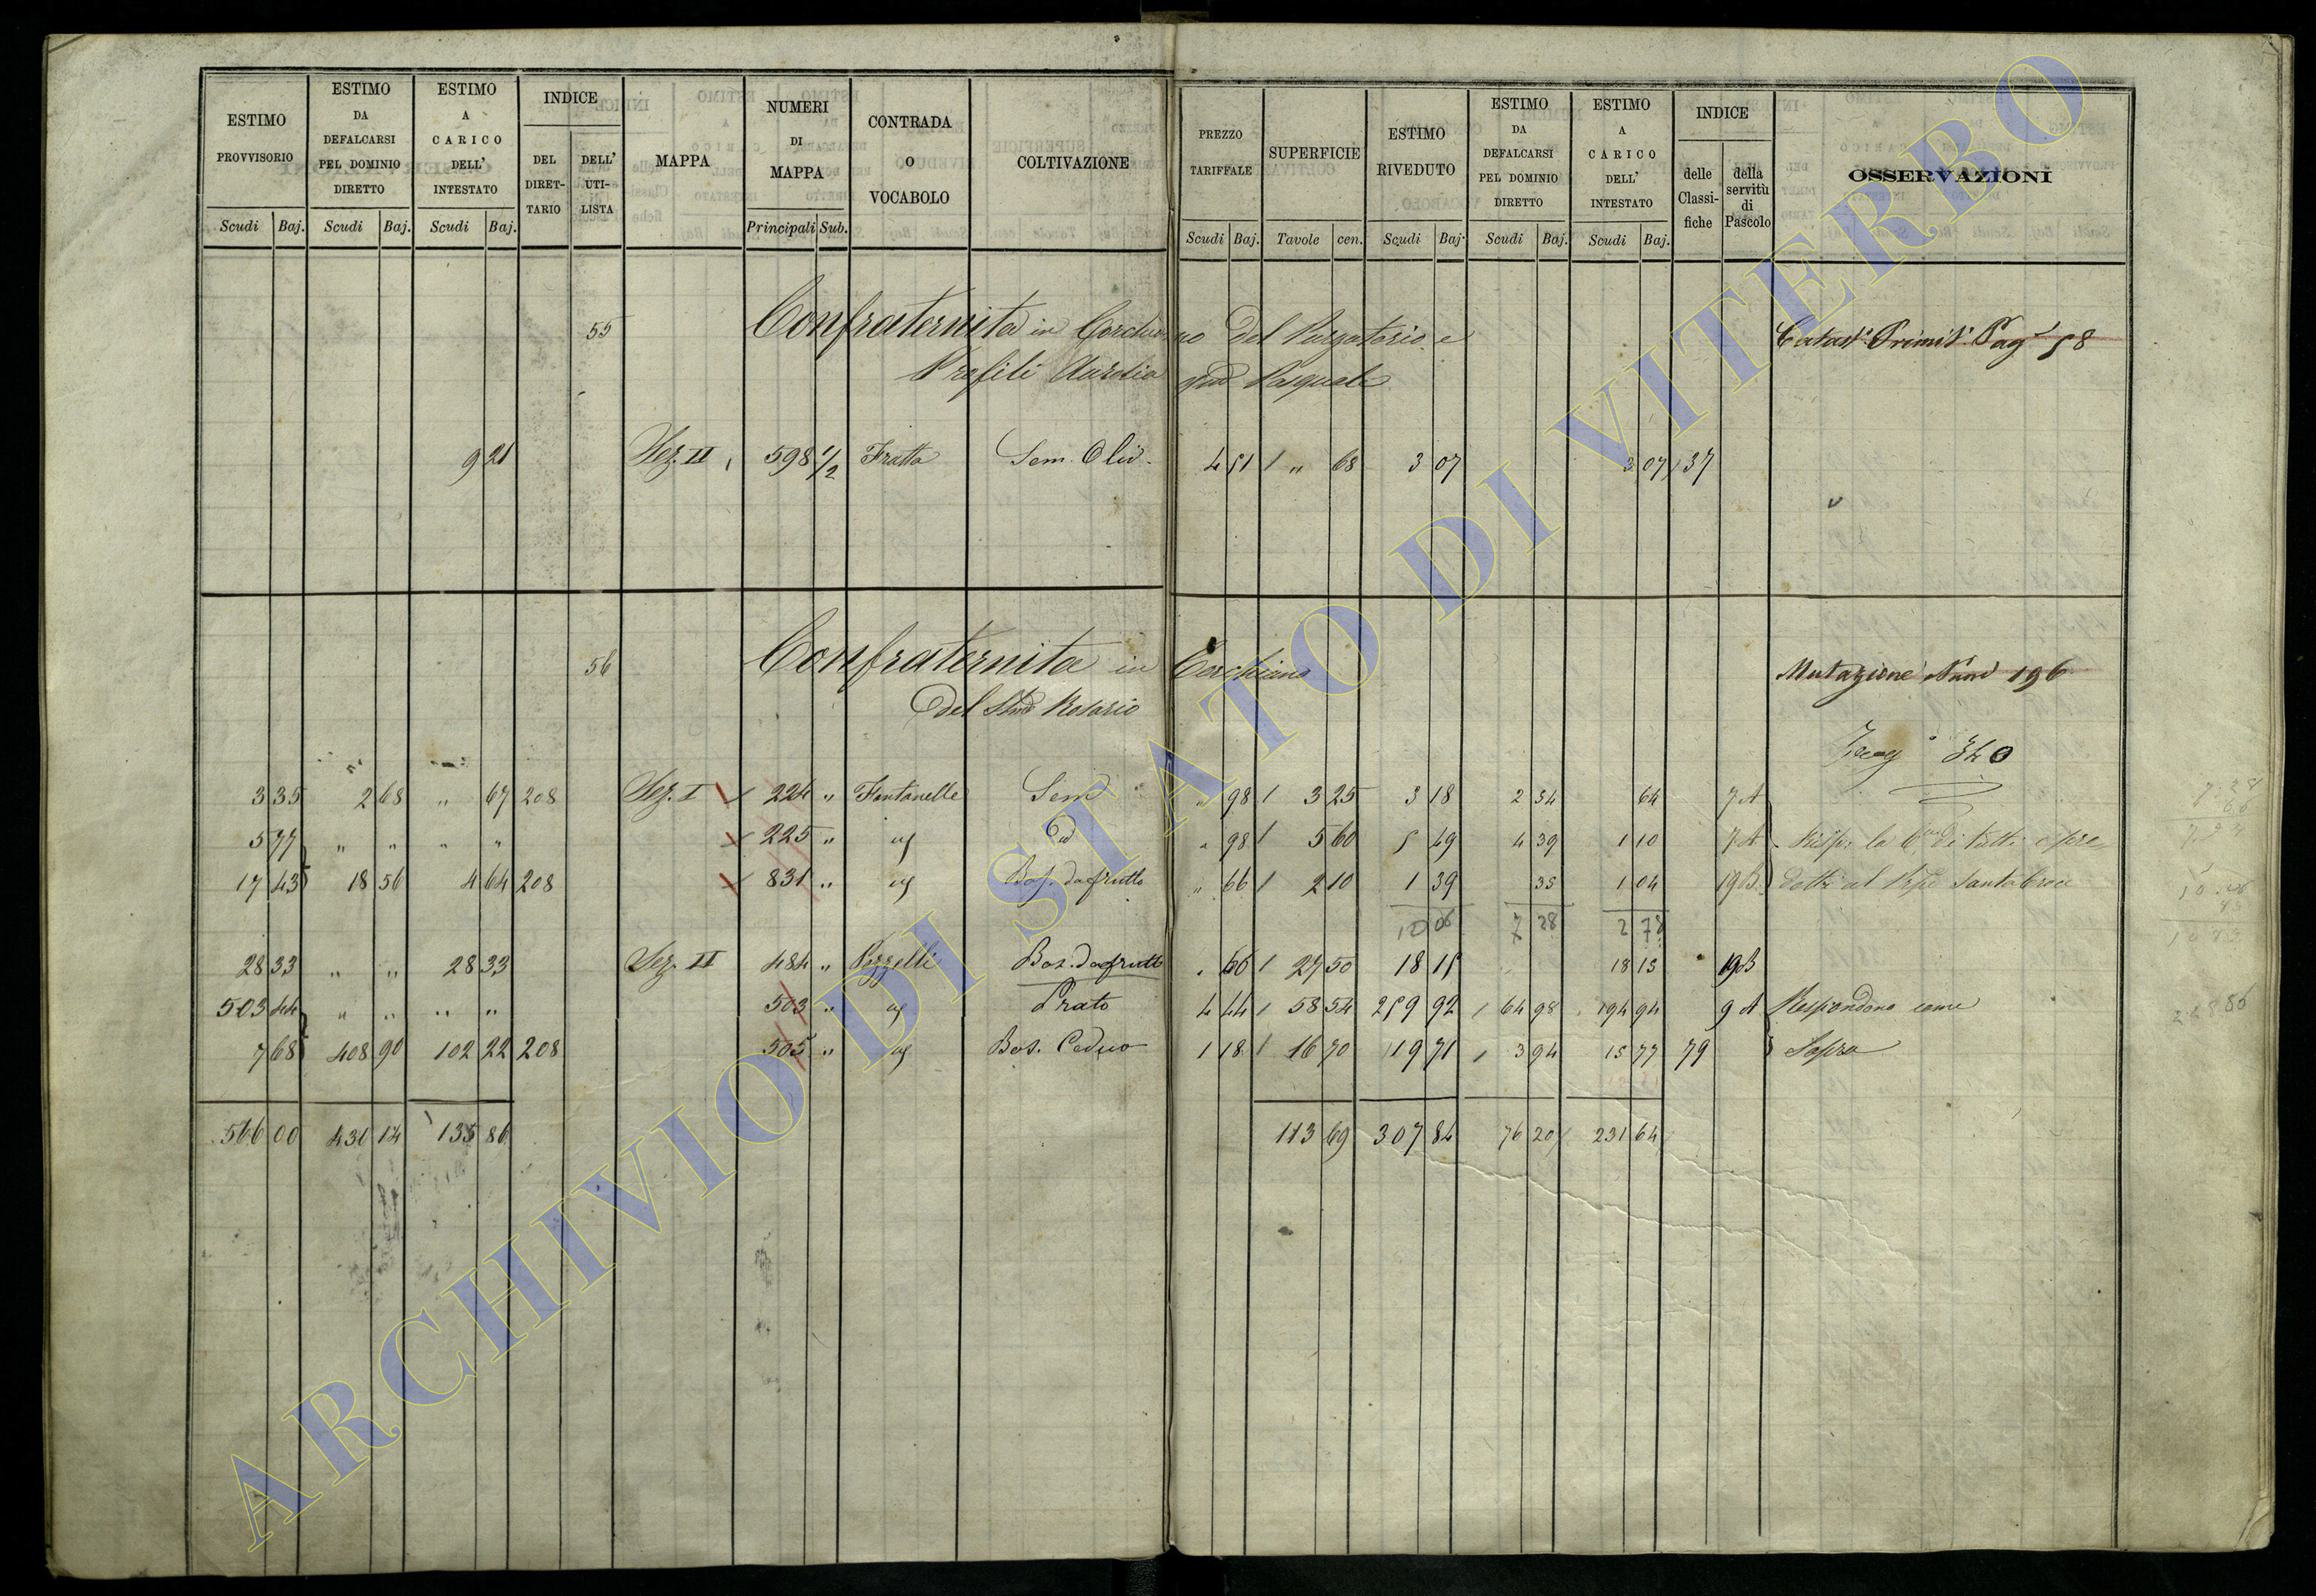 ESTIMO PROVVISORIO
ESTIMO DA DEFALCARSI PEL DOMINIO DIRETTO
ESTIMO A CARICO DELL' INTESTATO
INDICE
DEL DIRET-TARIO
DELL' UTI-LISTA
MAPPA
NUMERI DI MAPPA
CONTRADA O VOCABOLO
COLTIVAZIONE
PREZZO TARIFFALE
SUPERFICIE
ESTIMO RIVEDUTO
ESTIMO DA DEFALCARSI PEL DOMINIO DIRETTO
ESTIMO A CARICO DELL' INTESTATO
INDICE
delle Classi-fiche
della servitù di Pascolo
OSSERVAZIONI
Scudi Baj. Scudi Baj. Scudi Baj. Principali Sub. Scudi Baj. Tavole cen. Scudi Baj. Scudi Baj. Scudi Baj.
55 Confraternita in Corchiano del Purgatorio e Catast. Primit. Pag. 58
Profili Aurelia Pasquale
9 21 Sez. II 598 1/2 Fratta Sem. Oliv. 4 51 " 68 3 07 3 07 37
56 Confraternita in Corchiano Mutazione Num 196
Del SSmo Rosario
340
3 35 2 68 " 67 208 Sez. I 224 " Fontanelle Sem " 98 3 25 3 18 2 34 64 7 A
5 77 " " " " 225 " id " 98 5 60 5 49 4 39 1 10 7 A
17 43 18 56 4 64 208 831 " id Bos. da frutto " 66 2 10 1 39 35 1 04 19 B
10 06 7 28 2 78
28 33 " " 28 33 Sez. II 484 " Pizzelli Bos. da frutto " 66 27 50 18 15 18 15 19 B
503 44 " " " " 503 " id Prato 4 44 58 54 259 92 64 98 194 94 9 A Respondono come
7 68 408 90 102 22 208 505 " id Bos. Ceduo 1 18 16 70 19 71 3 94 15 77 79 Sopra
566 00 430 14 135 86 113 69 307 84 76 20 231 64
ARCHIVIO DI STATO DI VITERBO